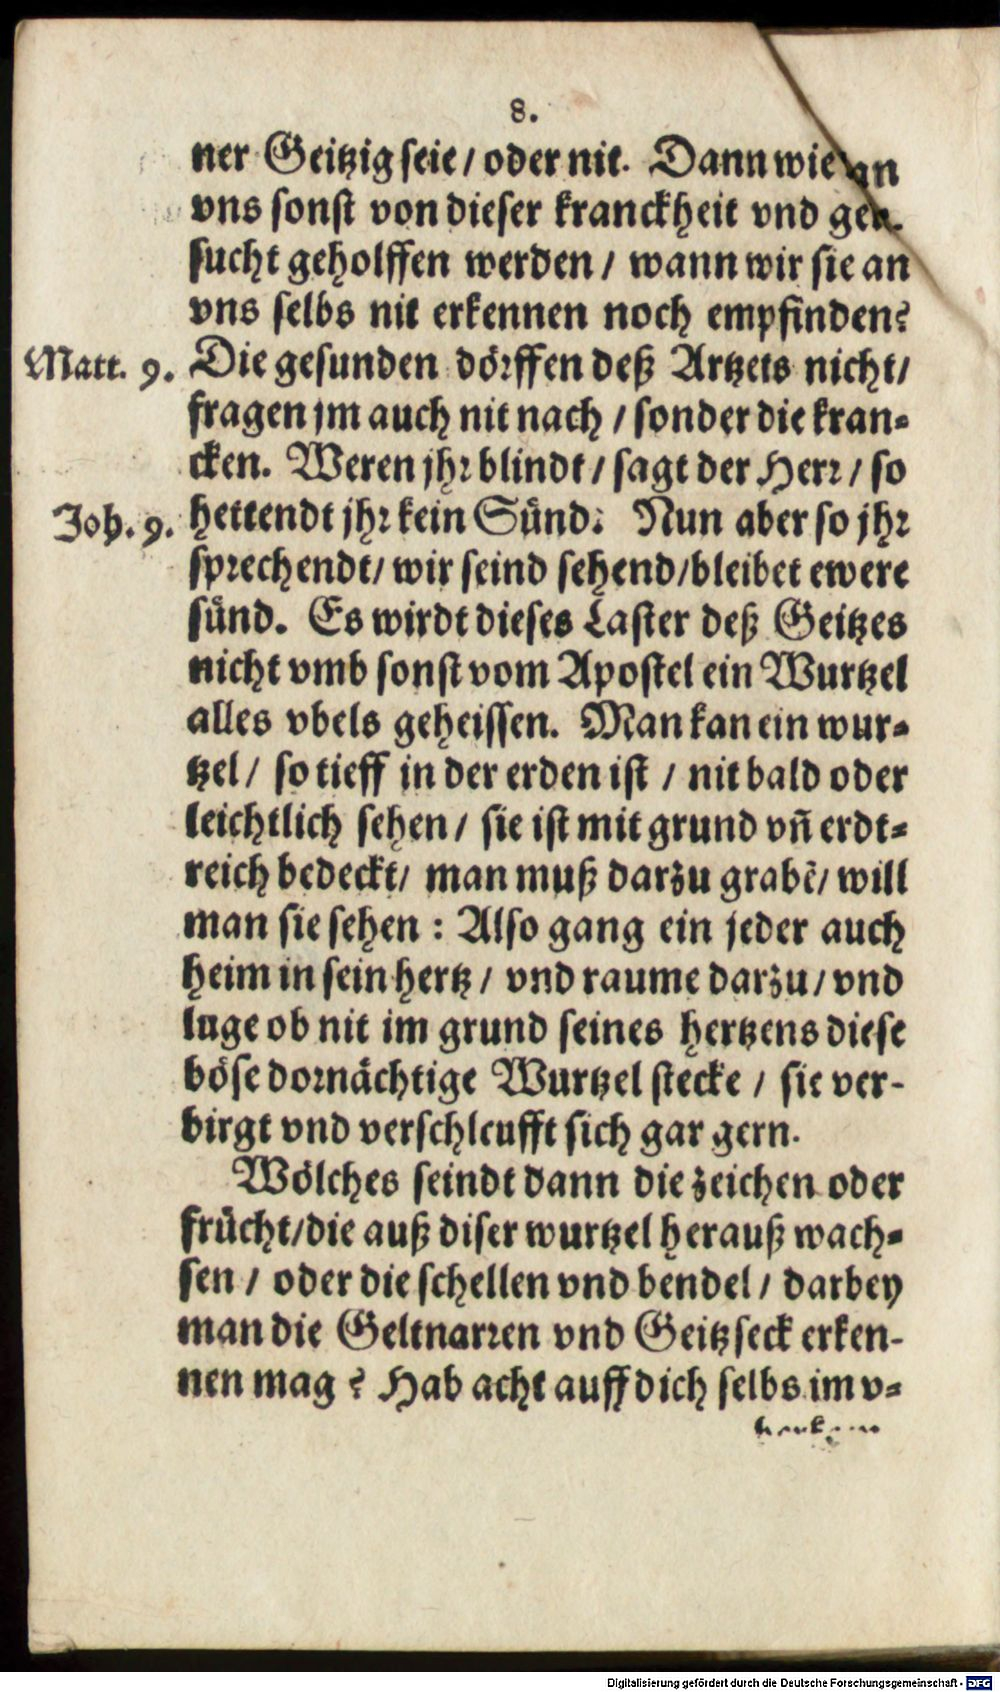 8.
ner Geitzig seie / oder nit. Dann wie kan
vns sonst von dieser kranckheit vnd gelt-
sucht geholffen werden / wann wir sie an
vns selbs nit erkennen noch empfinden?
Matt. 9. Die gesunden dörffen deß Artzets nicht /
fragen jm auch nit nach / sonder die kran-
cken. Weren jhr blindt / sagt der Herr / so
Joh. 9. hettendt jhr kein Sünd: Nun aber so jhr
sprechendt / wir seind sehend / bleibet ewere
sünd. Es wirdt dieses Laster deß Geitzes
nicht vmb sonst vom Apostel ein Wurtzel
alles vbels geheissen. Man kan ein wur-
tzel / so tieff in der erden ist / nit bald oder
leichtlich sehen / sie ist mit grund vñ erdt-
reich bedeckt / man muß darzu grabẽ / will
man sie sehen : Also gang ein jeder auch
heim in sein hertz / vnd raume darzu / vnd
luge ob nit im grund seines hertzens diese
böse dornächtige Wurtzel stecke / sie ver-
birgt vnd verschleufft sich gar gern.
Wölches seindt dann die zeichen oder
frücht / die auß diser wurtzel herauß wach-
sen / oder die schellen vnd bendel / darbey
man die Geltnarren vnd Geitzseck erken-
nen mag ? Hab acht auff dich selbs im v-
Digitalisierung gefördert durch die Deutsche Forschungsgemeinschaft - DFG